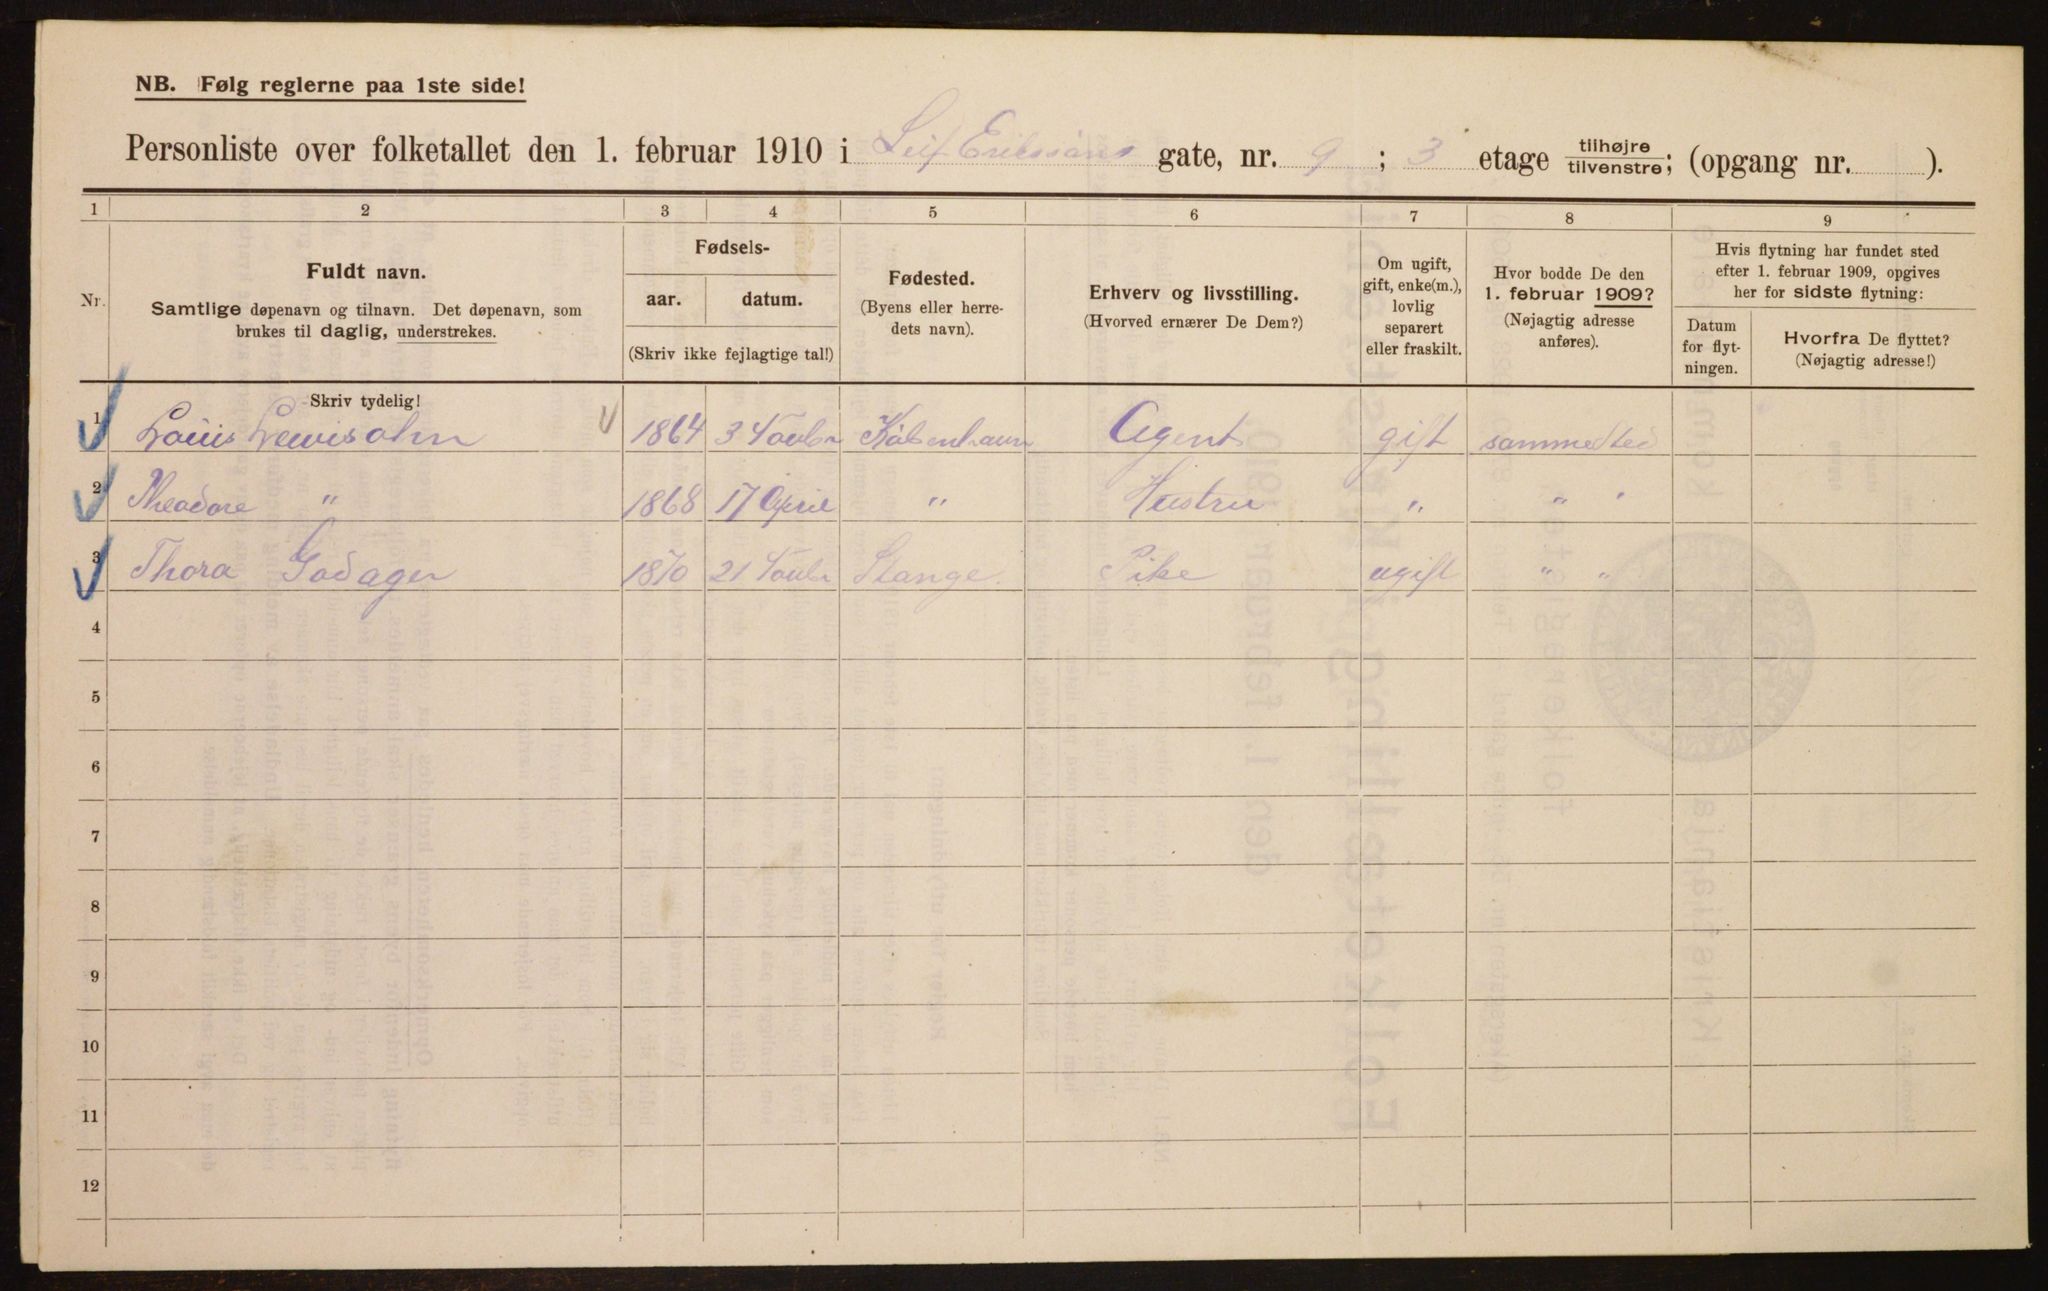 NB. Følg reglerne paa 1ste side!
Personliste over folketallet den 1. februar 1910 i Leif Erikssøns gate, nr. 9 ; 3 etage tilhøjre tilvenstre; (opgang nr. ).
1 2 3 4 5 6 7 8 9
Nr.
Fuldt navn.
Samtlige døpenavn og tilnavn. Det døpenavn, som
brukes til daglig, understrekes.
Fødsels-
aar. datum.
(Skriv ikke fejlagtige tal!)
Fødested.
(Byens eller herre-
dets navn).
Erhverv og livsstilling.
(Hvorved ernærer De Dem?)
Om ugift,
gift, enke(m.),
lovlig
separert
eller fraskilt.
Hvor bodde De den
1. februar 1909?
(Nøjagtig adresse
anføres).
Hvis flytning har fundet sted
efter 1. februar 1909, opgives
her for sidste flytning:
Datum
for flyt-
ningen.
Hvorfra De flyttet?
(Nøjagtig adresse!)
Skriv tydelig!
1 Louis Lewisohn 1864 3 Novbr København Agent gift sammested
2 Theadore " 1868 17 April " Hustru " " "
3 Thora Godager 1870 21 Novbr Stange. Pike ugift " "
4
5
6
7
8
9
10
11
12